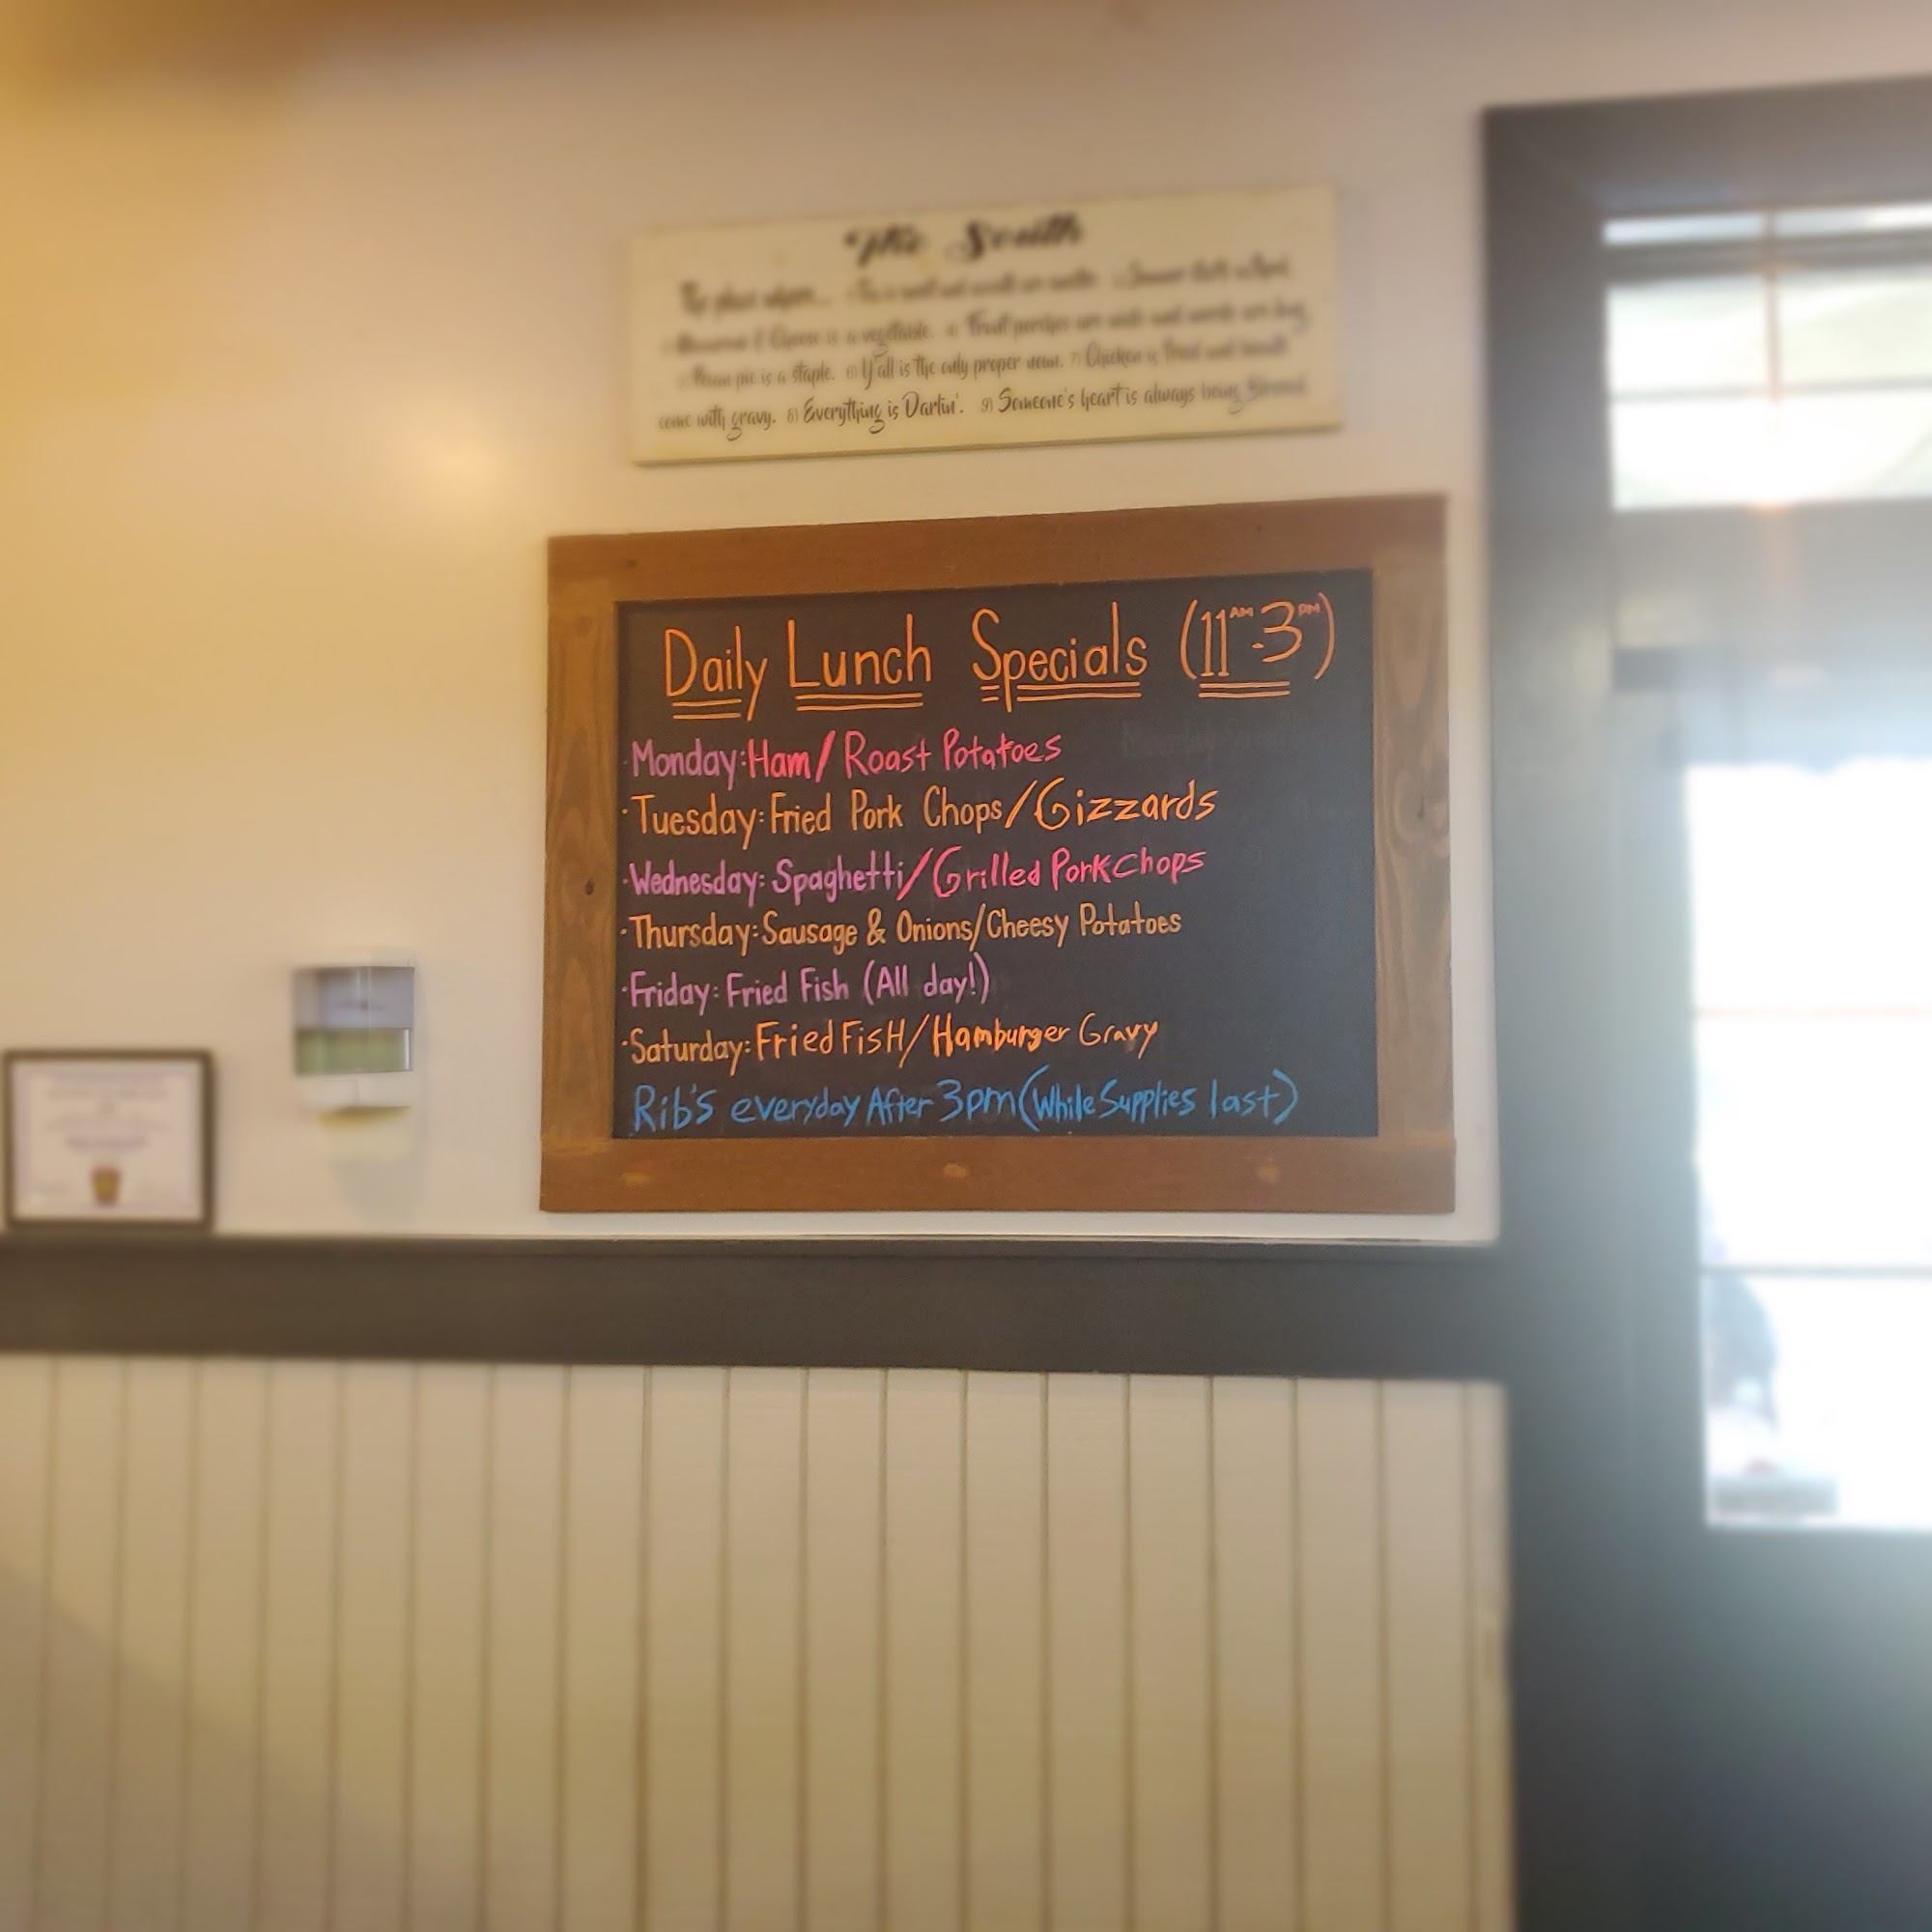 The South
The place where...
Cheese is a vegetable. Front porches are wide and words are long.
Pecan pie is a staple. 6) Y'all is the only proper noun. 7) Chicken is fried and
come with gravy. 8) Everything is Darlin'. 9) Someone's heart is always being blessed.
Daily Lunch Specials (11AM-3PM)
Monday: Ham/ Roast Potatoes
·Tuesday: Fried Pork Chops/Gizzards
·Wednesday: Spaghetti/Grilled Pork Chops
·Thursday: Sausage & Onions/Cheesy Potatoes
·Friday: Fried Fish (All day!)
·Saturday: Fried FisH/Hamburger Gravy
Rib's everyday After 3pm (While Supplies last)